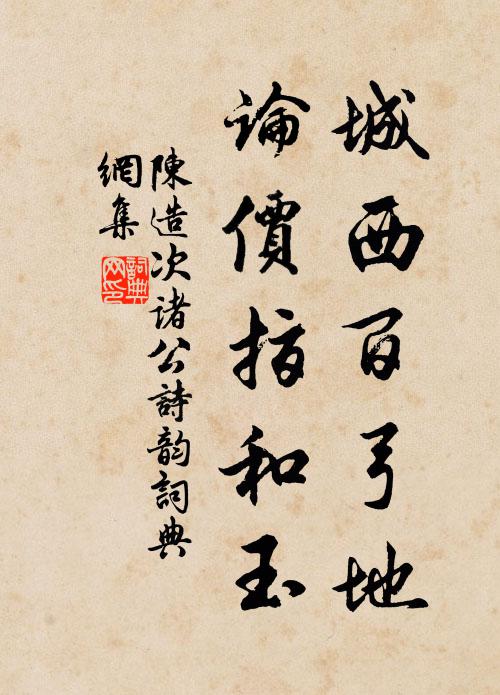 城西百弓地
論價指和玉
陳造次諸公詩韵詞典
網集
詞典
网印